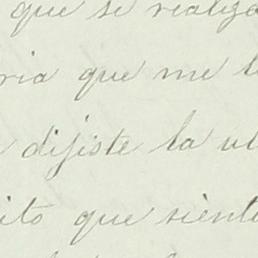 que se realiza
ria que me
dijiste la
ito que siente